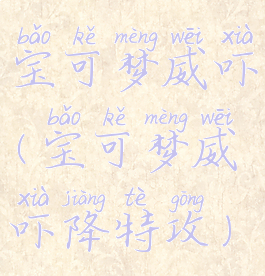 bǎo kě mèng wēi xià
宝可梦威吓
bǎo kě mèng wēi
(宝可梦威
xià jiàng tè gōng
吓降特攻)